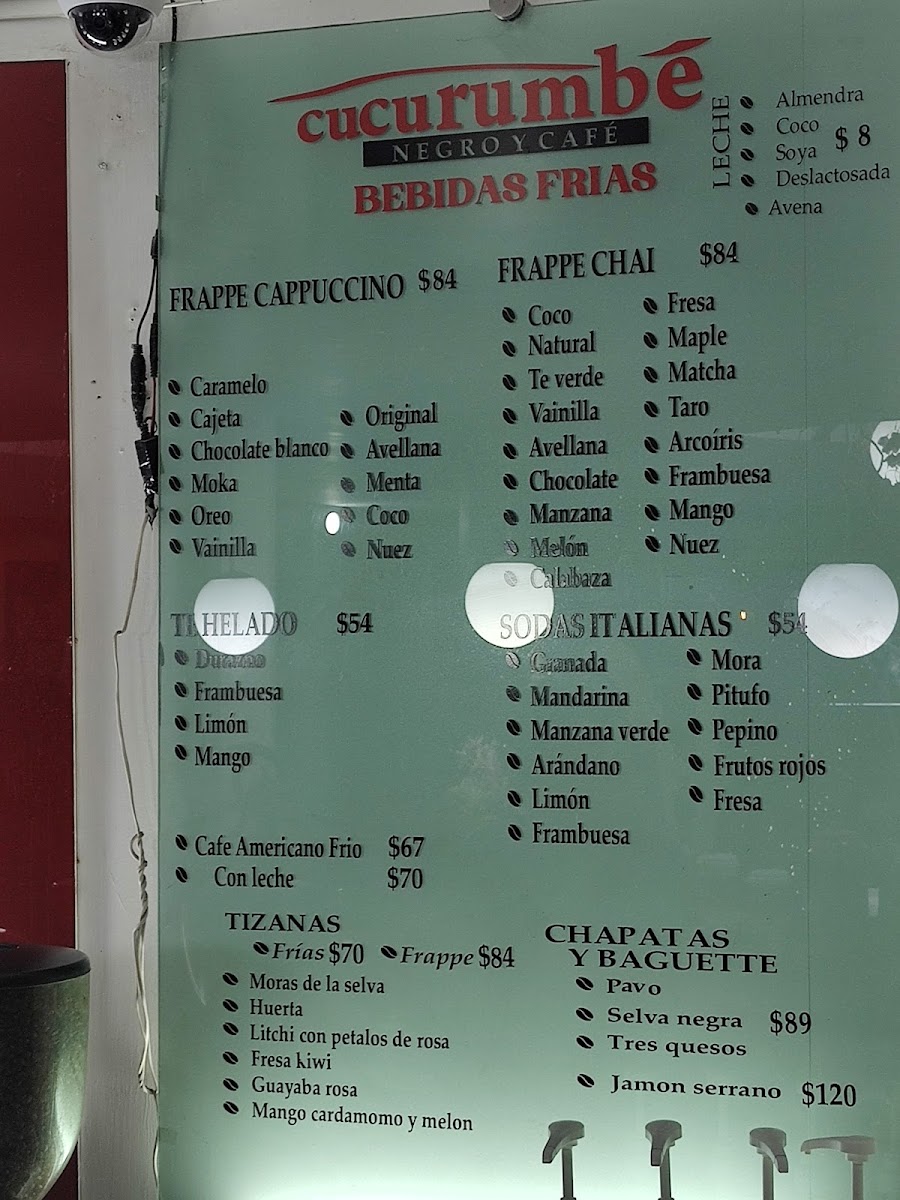 cucurumbé
NEGRO Y CAFÉ
BEBIDAS FRIAS
LECHE
Almendra
Coco
Soya
$ 8
Deslactosada
Avena
FRAPPE CAPPUCCINO $84
Caramelo
Cajeta
Chocolate blanco
Moka
Oreo
Vainilla
Original
Avellana
Menta
Coco
Nuez
FRAPPE CHAI $84
Coco
Natural
Te verde
Vainilla
Avellana
Chocolate
Manzana
Melón
Calabaza
Fresa
Maple
Matcha
Taro
Arcoíris
Frambuesa
Mango
Nuez
TE HELADO $54
Durazno
Frambuesa
Limón
Mango
SODAS ITALIANAS $54
Granada
Mandarina
Manzana verde
Arándano
Limón
Frambuesa
Mora
Pitufo
Pepino
Frutos rojos
Fresa
Cafe Americano Frio $67
Con leche $70
TIZANAS
Frías $70 Frappe $84
Moras de la selva
Huerta
Litchi con petalos de rosa
Fresa kiwi
Guayaba rosa
Mango cardamomo y melon
CHAPATAS
Y BAGUETTE
Pavo
Selva negra $89
Tres quesos
Jamon serrano $120